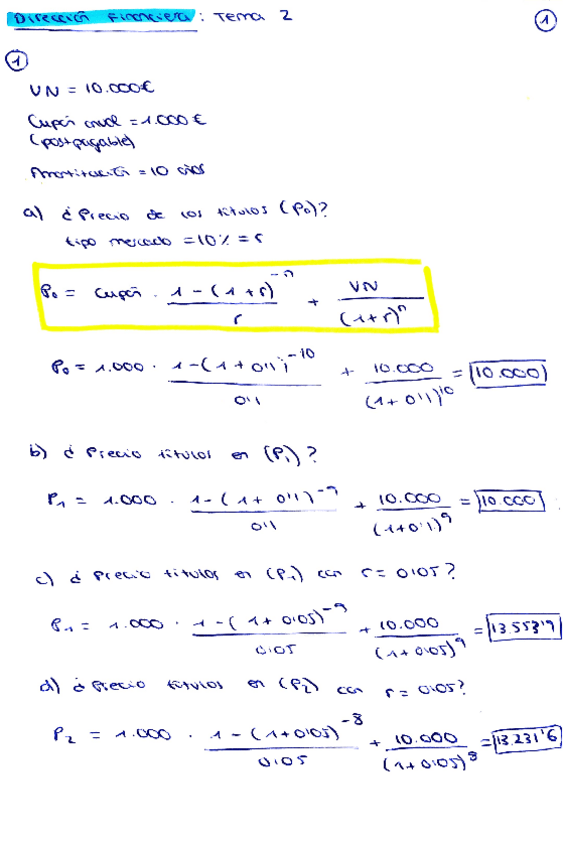 Dirección Financiera : Tema 2
1
1
VN = 10.000€
Cupón anual = 1.000 €
(postpagable)
Amortización = 10 años
a) ¿Precio de los títulos (P₀)?
tipo mercado = 10% = r
P₀ = Cupón · (1 - (1 + r)⁻ⁿ) / r + VN / (1+r)ⁿ
P₀ = 1.000 · (1 - (1 + 0'1)⁻¹⁰) / 0'1 + 10.000 / (1 + 0'1)¹⁰ = 10.000
b) ¿Precio títulos en (P₁)?
P₁ = 1.000 · (1 - (1 + 0'1)⁻⁹) / 0'1 + 10.000 / (1+0'1)⁹ = 10.000
c) ¿Precio títulos en (P₁) con r = 0'05?
P₁ = 1.000 · (1 - (1 + 0'05)⁻⁹) / 0'05 + 10.000 / (1+0'05)⁹ = 13.553'9
d) ¿Precio títulos en (P₂) con r = 0'05?
P₂ = 1.000 · (1 - (1+0'05)⁻⁸) / 0'05 + 10.000 / (1+0'05)⁸ = 13.231'6